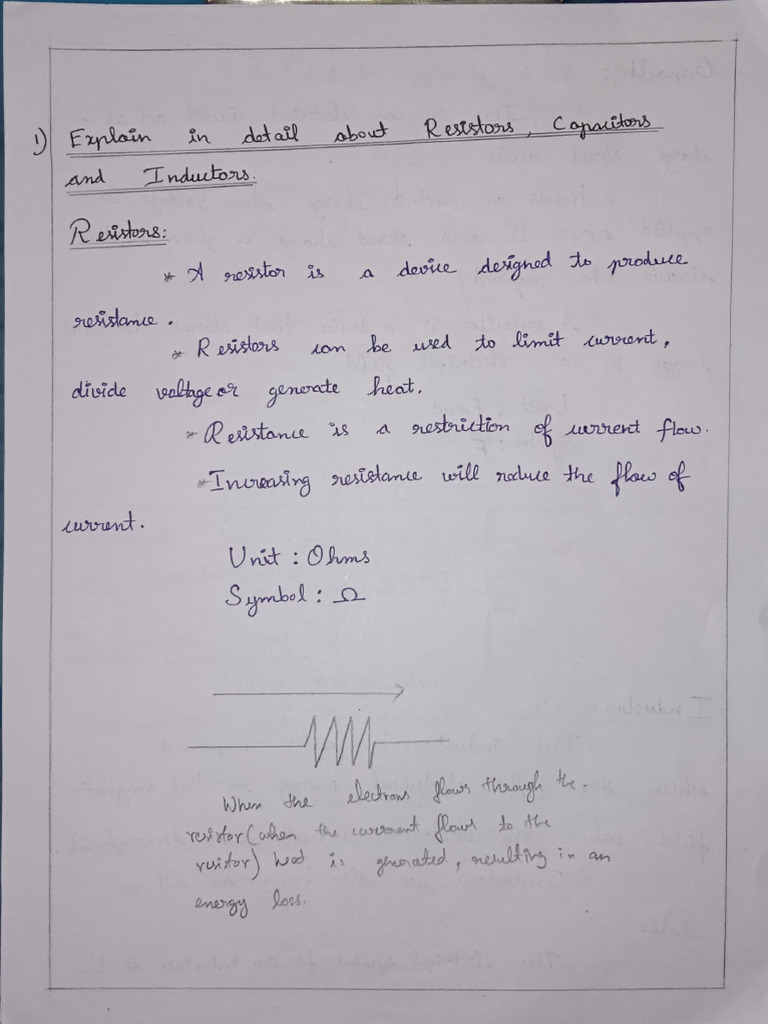 1) Explain in detail about Resistors, Capacitors
and Inductors.
Resistors:
* A resistor is a device designed to produce
resistance.
* Resistors can be used to limit current,
divide voltage or generate heat.
* Resistance is a restriction of current flow.
* Increasing resistance will reduce the flow of
current.
Unit : Ohms
Symbol : Ω
When the electrons flows through the
resistor (when the current flows to the
resistor) heat is generated, resulting in an
energy loss.